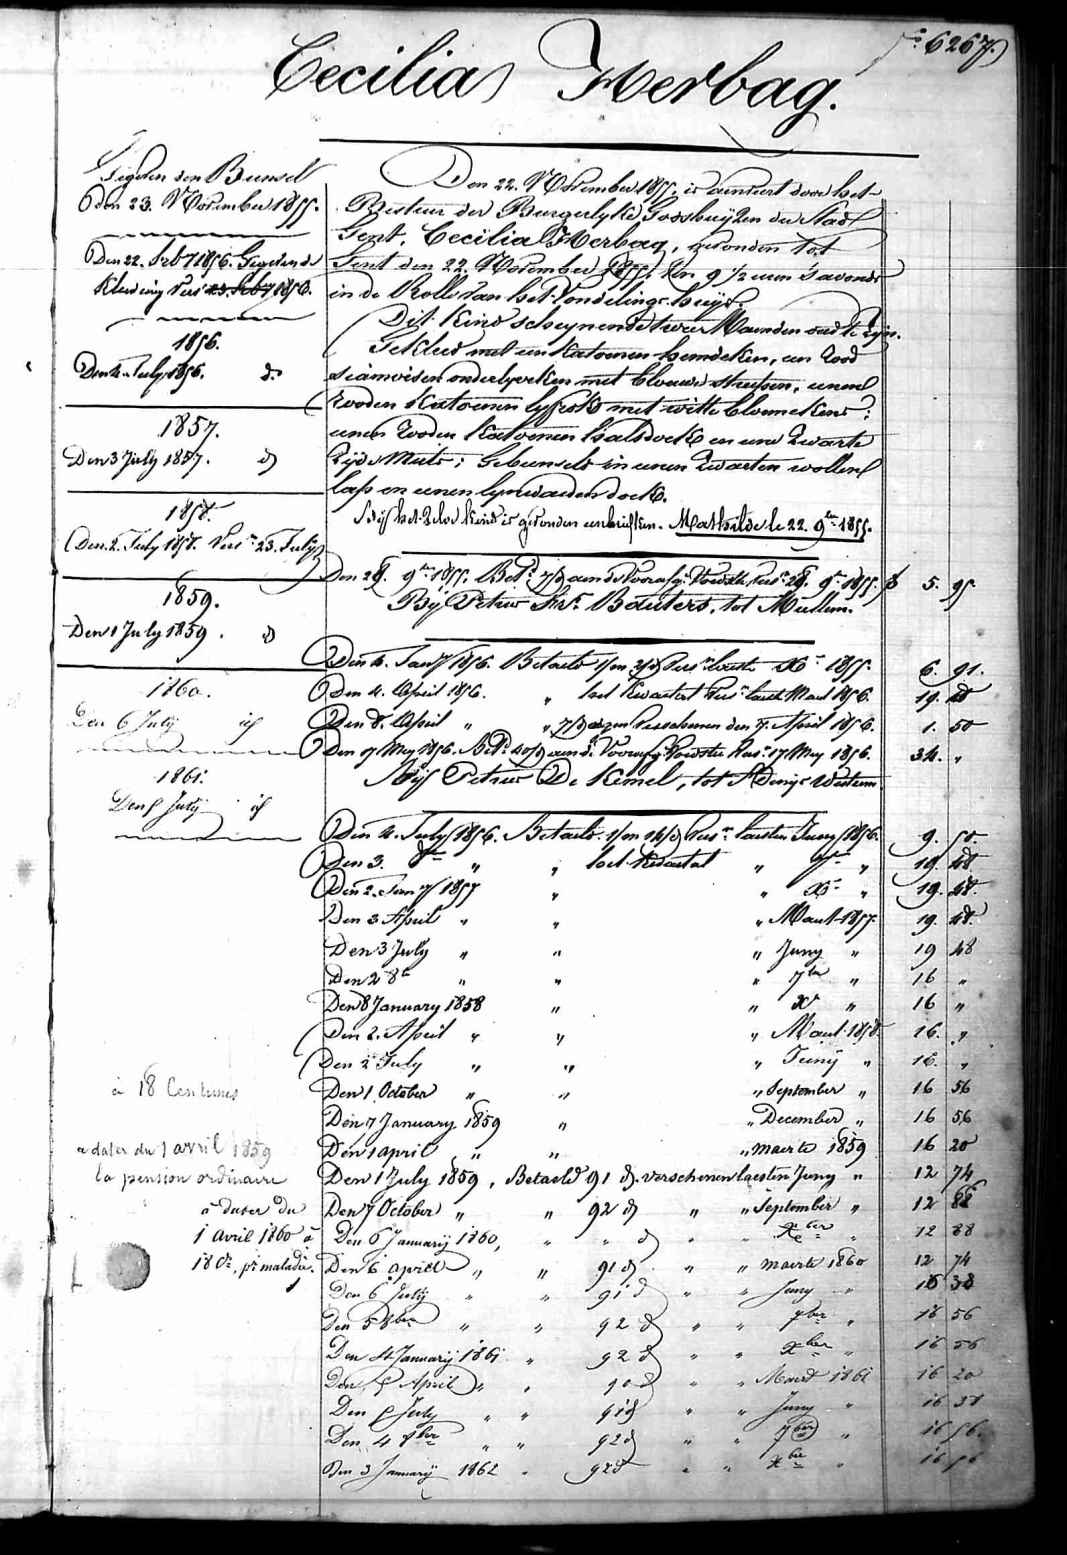 f° 6267.
Cecilia Herbag.
Den 22. November 1855, is aenveert door het
Bestuer der Burgerlyke Godshuyzen der Stad
Gent, Cecilia Herbag, gevonden tot
Gent den 22. November 1855, ten 9 1/2 uren 's avonds
in de Rolle van het Vondelings-huys.
Dit kind scheynende twee Maenden oud te zyn.
Gekleed met een katoenen hemdeken, een rood
siamoisen onderlyveken met blouwe streepen, eenen
rooden katoenen lyfrok met witte bloemekens;
eenen rooden katoenen halsdoek en eene zwarte
zyde Muts; Gebunseld in eenen zwarten wollen
lap en eenen lynwaeden doek.
Bij het zelve kind is gevonden een briefken. Mathilde le 22. 9bre 1855.
Den 28. 9br 1855. Bet. 7/d aen de Voorafg. Voedster vers. 28. 9br 1855. f 5. 95
Bij Petrus Frs. Bauters, tot Mullem.
Den 4. Jany 1856. Betaeld 1/m 2/d vers. 1855. 6. 91.
Den 4. April 1856. " het kwartael vers. laest. Maert 1856. 19. 48
Den 8. April " " 7/d verschenen den 7. April 1856. 1. 50
Den 17. Mey 1856. Bet. 40/d aen de Voorafg. Voedster vers. 17 Mey 1856. 34. "
Bij Petrus De Kemel, tot St Denijs Westrem.
Den 4. July 1856. Betaeld 1/m 14/d vers. laesten Juny 1856. 9. 50.
Den 3. 8br " " het kwartael " 7br " 19. 48
Den 2. Jany 1857 " " Xbr " 19. 48.
Den 3 April " " " Maert 1857 19. 48.
Den 3 July " " " Juny " 19 48
Den 2 8br " " " 7ber " 16 "
Den 8 January 1858 " " Xr " 16 "
Den 2. April " " " Maert 1858 16. "
Den 2 July " " " Juny " 16. "
Den 1 October " " " September " 16 56
Den 7 January 1859 " " December " 16 56
Den 1 april " " " maerte 1859 16 20
Den 1 July 1859, Betaeld 91 d. verschenen laesten Juny " 12 74
Den 7 October " " 92 d " " September " 12 88
Den 6 Januarij 1860, " " d " " Xber " 12 88
Den 6 april " " 91 d " " maerte 1860 12 74
Den 6 July " " 91 d " " Juny " 16 38
Den 5 8ber " " 92 d " " 7ber " 16 56
Den 4 Januarij 1861 " 92 d " " Xber " 16 56
Den 5 April " " 90 d " " Maert 1861 16 20
Den 5 July " " 91 d " " Juny " 16 38
Den 4 8ber " " 92 d " " 7ber " 16 56.
Den 3 Januarij 1862 " 92 d " " Xbre " 16 56
den Bunsel
den 23. November 1855.
Den 22. feb 1856. Gegeven de
Kleeding vers 1856.
1856.
Den 4 July 1856. do
1857.
Den 3 July 1857. d
1858.
Den 2. July 1858. Vers. 23. July
1859.
Den 1 July 1859. d
1860.
Den 6 July id
1861.
Den 5 July id
à 18 Centimes
a dater du 1 avril 1859
la pension ordinaire
à dater du
1 Avril 1860 à
18 Cs. pr maladie.